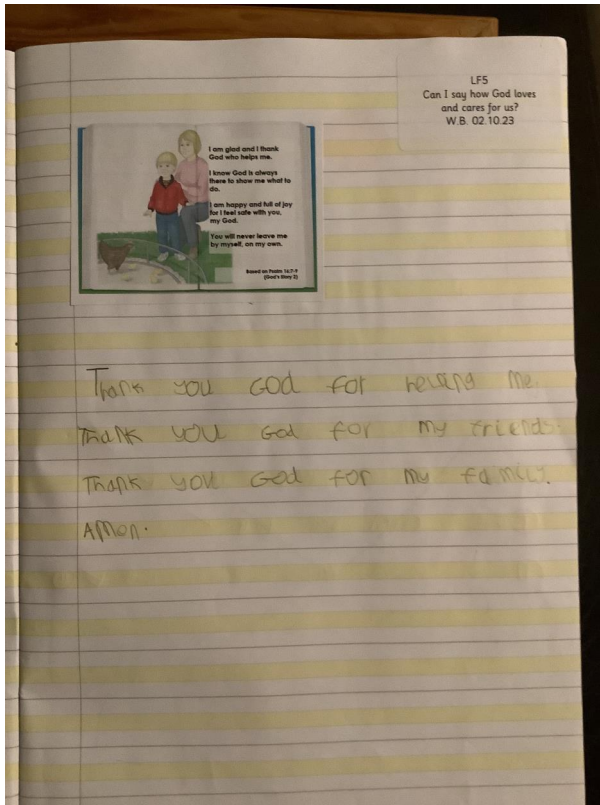 LF5
Can I say how God loves
and cares for us?
W.B. 02.10.23
I am glad and I thank
God who helps me.
I know God is always
there to show me what to
do.
I am happy and full of joy
for I feel safe with you,
my God.
You will never leave me
by myself, on my own.
Based on Psalm 16:7-9
(God's Story 2)
Thank you God for me.
Thank you God for my friends.
Thank you God for my family.
Amen.